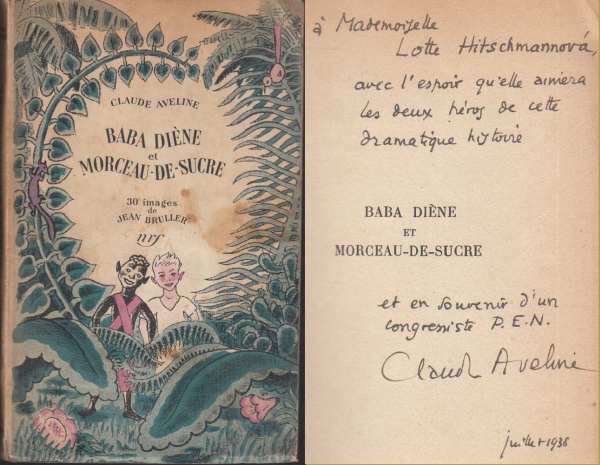 CLAUDE AVELINE
BABA DIÈNE
et
MORCEAU-DE-SUCRE
30 images
de
JEAN BRULLER
nrf
à Mademoizelle
Lotte Hitschmannová,
avec l'espoir qu'elle aimera
les deux héros de cette
dramatique histoire
BABA DIÈNE
ET
MORCEAU-DE-SUCRE
et en souvenir d'un
congressiste P.E.N.
Claude Aveline
juillet 1938